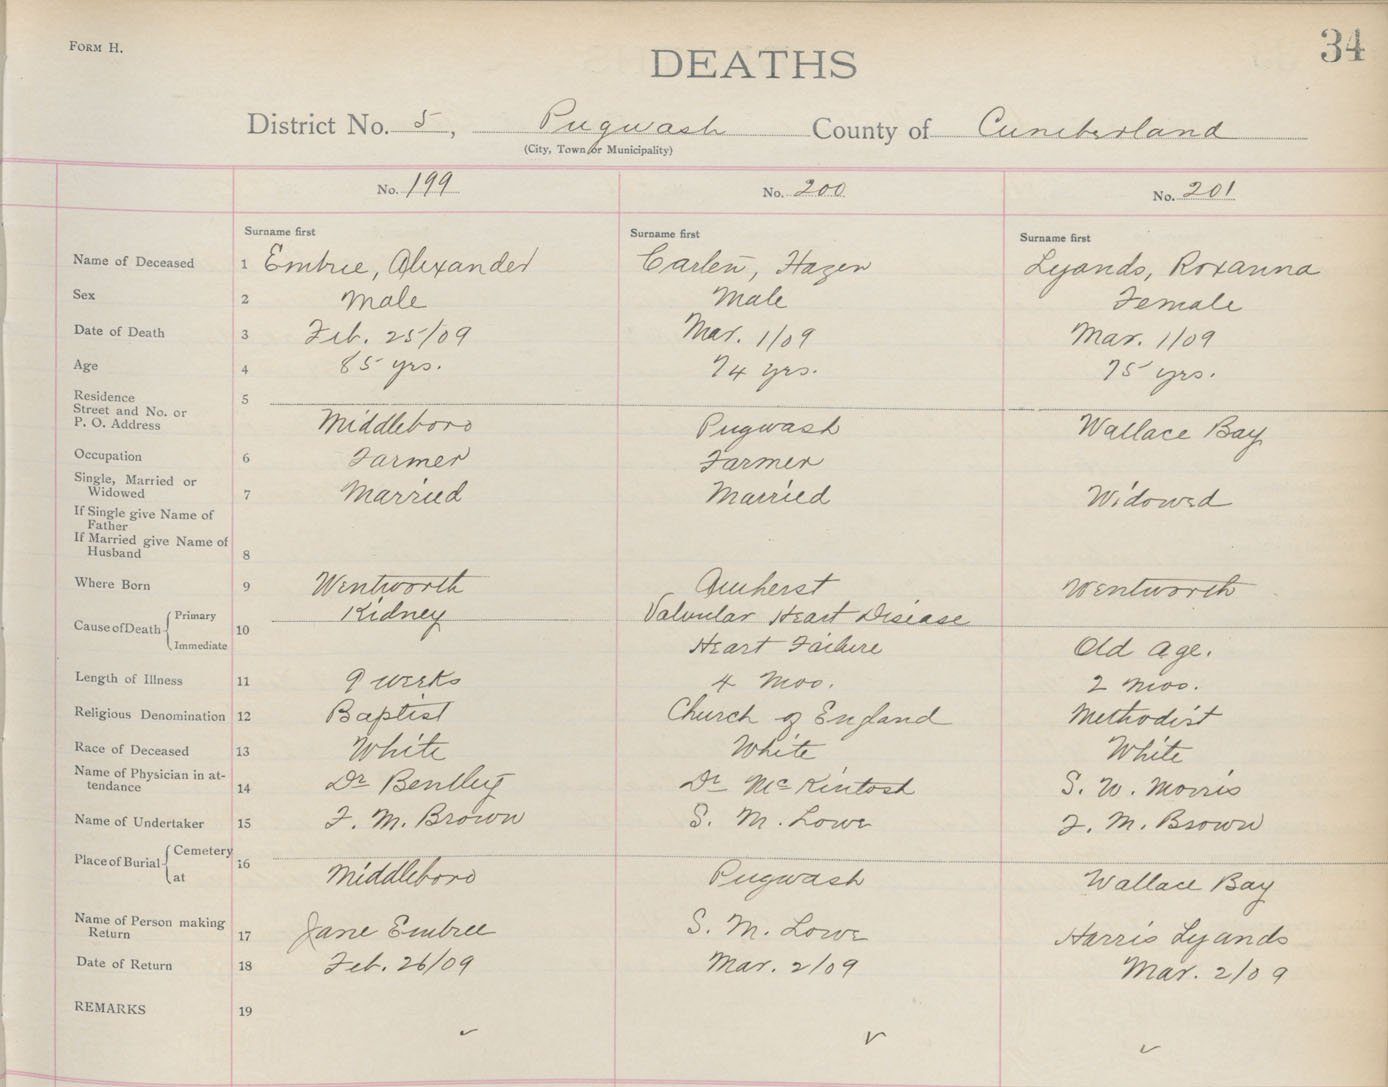 FORM H.
34
DEATHS
District No. 5, Pugwash County of Cumberland
(City, Town or Municipality)
No. 199 No. 200 No. 201
Surname first Surname first Surname first
Name of Deceased 1 Embree, Alexander Hazen Lyands, Roxanna
Sex 2 Male Male Female
Date of Death 3 Feb. 25/09 Mar. 1/09 Mar. 1/09
Age 4 85 yrs. 74 yrs. 75 yrs.
Residence 5
Street and No. or
P. O. Address Middleboro Pugwash Wallace Bay
Occupation 6 Farmer Farmer
Single, Married or
Widowed 7 Married Married Widowed
If Single give Name of
Father
If Married give Name of
Husband 8
Where Born 9 Wentworth Amherst Wentworth
Primary Kidney Valvular Heart Disease
Cause of Death 10
Immediate Heart Failure Old Age.
Length of Illness 11 9 weeks 4 Mos. 2 mos.
Religious Denomination 12 Baptist Church of England Methodist
Race of Deceased 13 White White White
Name of Physician in at-
tendance 14 Dr Bentley Dr McKintosh S. W. Morris
Name of Undertaker 15 F. M. Brown S. M. Lowe F. M. Brown
Cemetery
Place of Burial 16
at Middleboro Pugwash Wallace Bay
Name of Person making
Return 17 Jane Embree S. M. Lowe Harris Lyands
Date of Return 18 Feb. 26/09 Mar. 2/09 Mar. 2/09
REMARKS 19